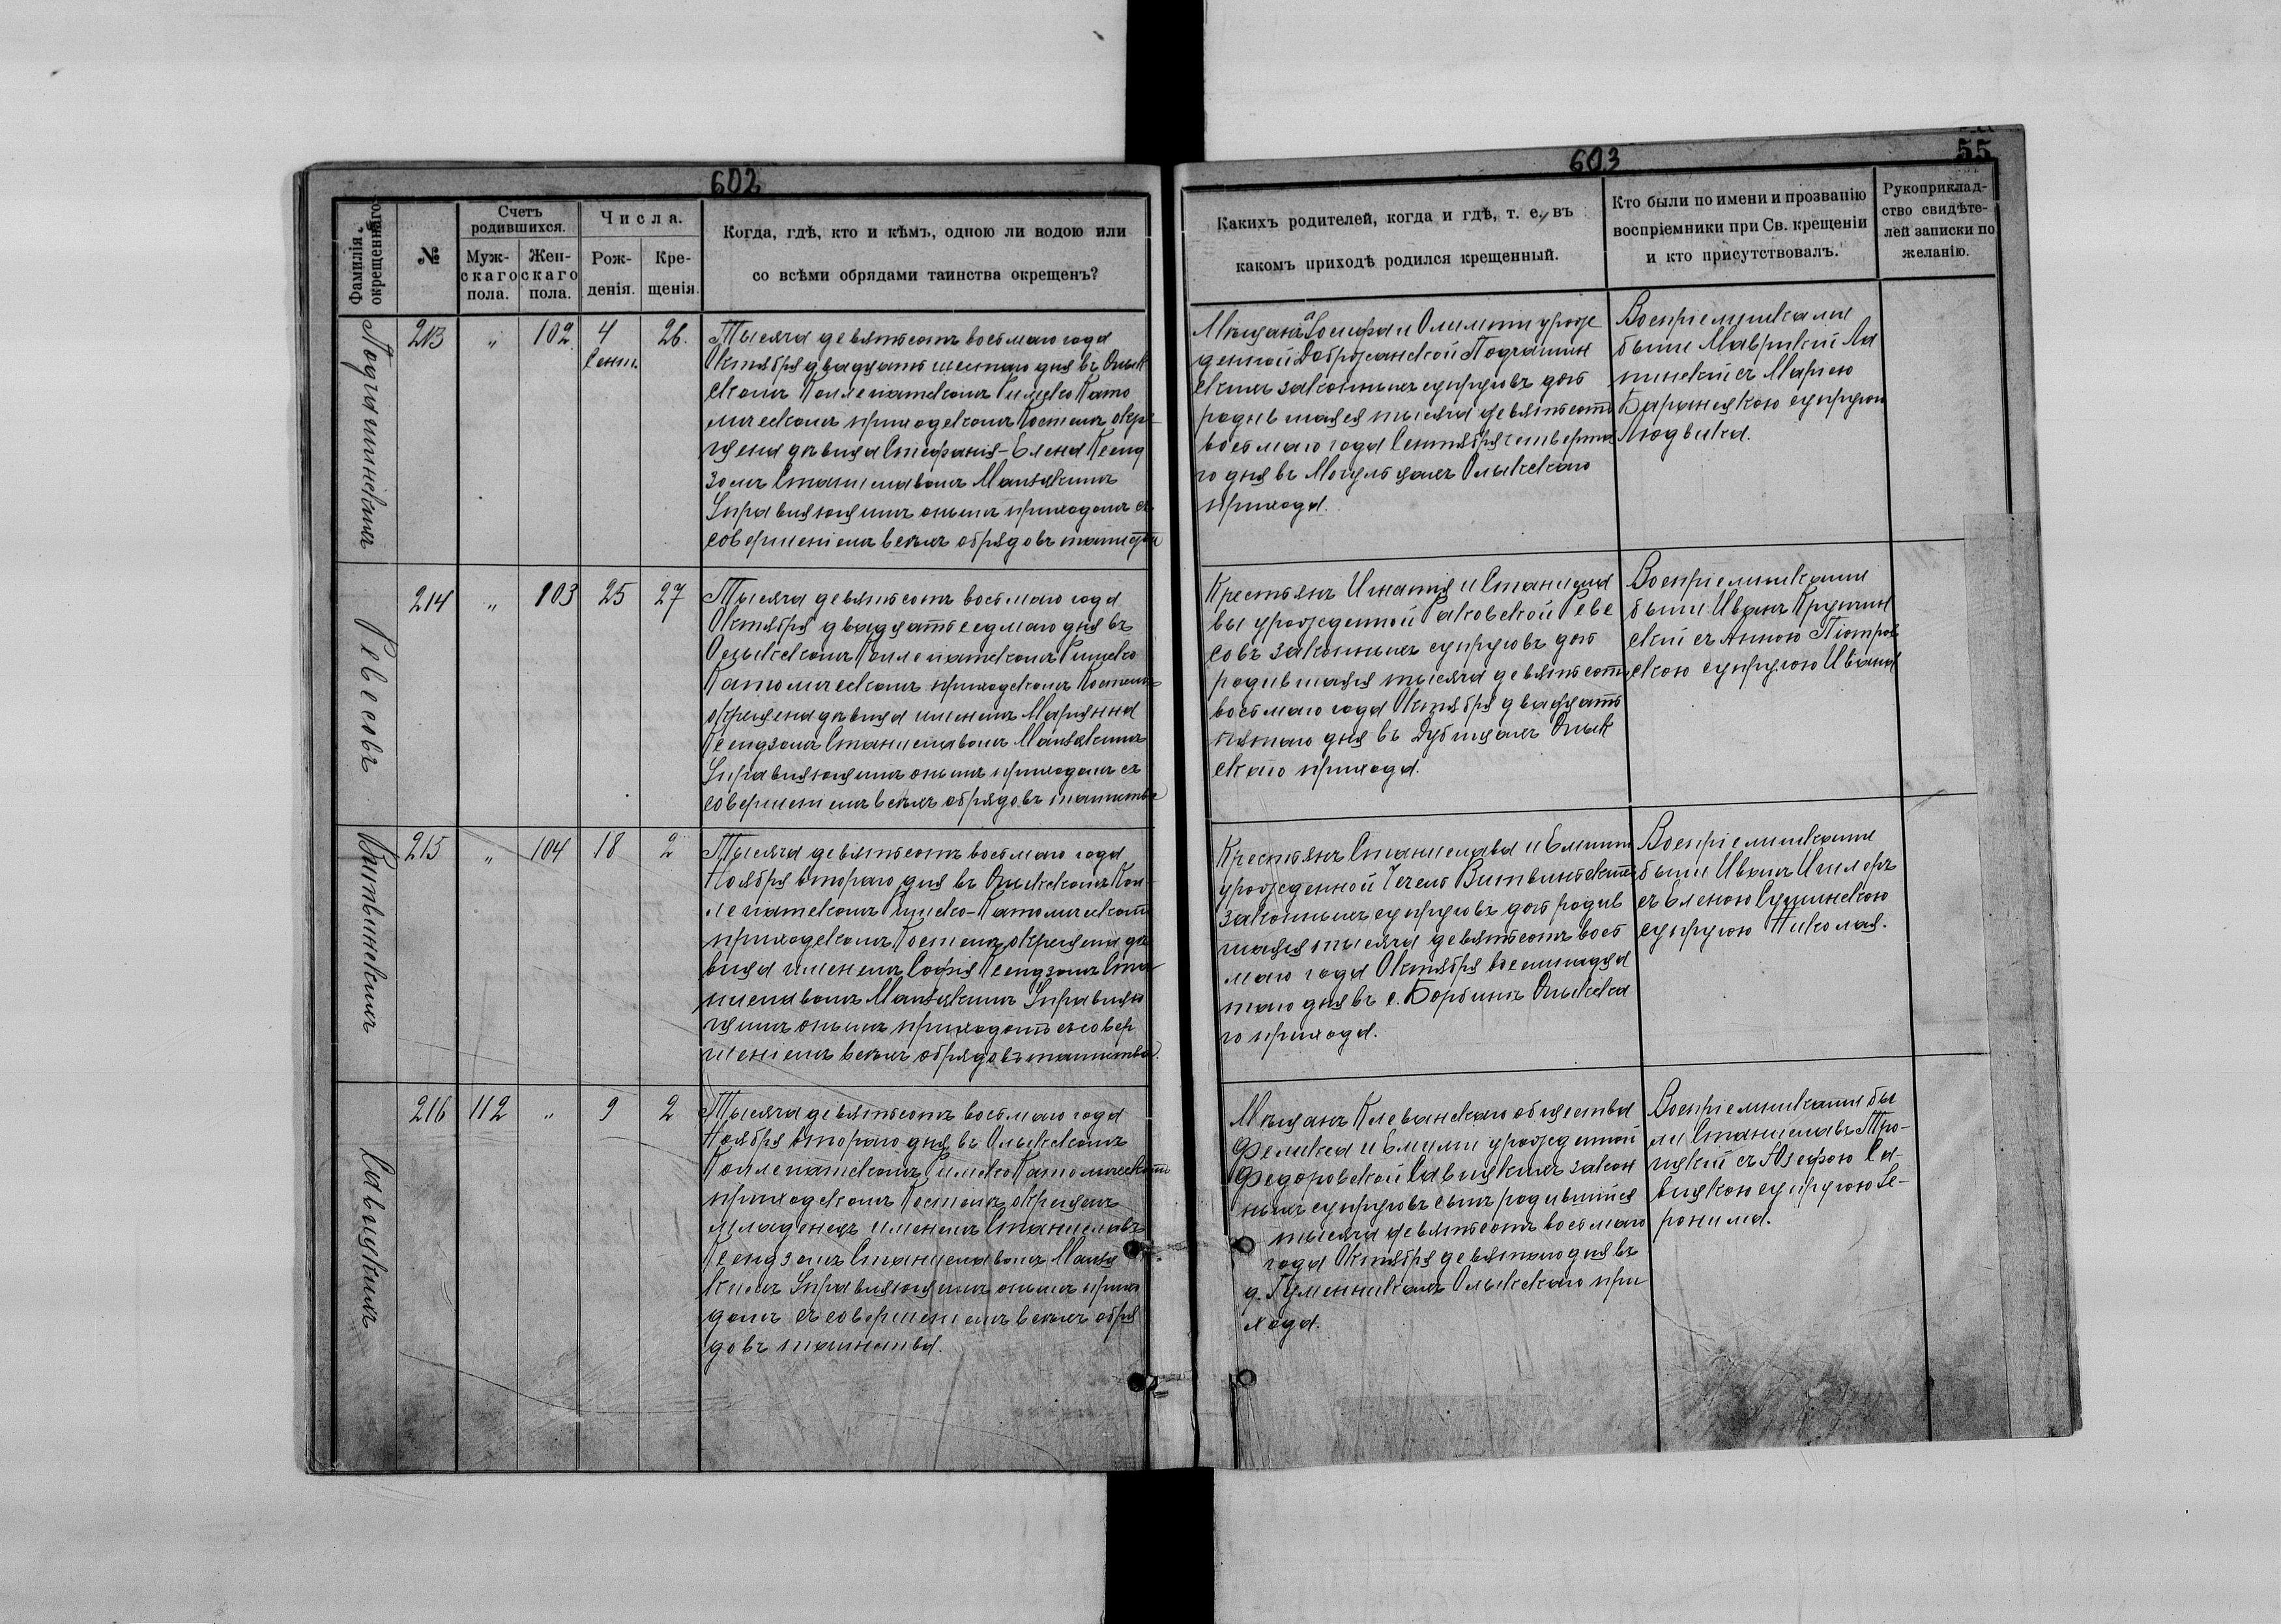 602
Фамилія окрещеннаго.
№
Счетъ родившихся.
Муж-
скаго
пола.
Жен-
скаго
пола.
Числа.
Рож-
денія.
Кре-
щенія.
Когда, гдѣ, кто и кѣмъ, одною ли водою или
со всѣми обрядами таинства окрещенъ?
213
"
102
4
Сент.
26.
Тысяча девятьсотъ восьмаго года
Октября двадцать шестаго дня въ Олык
скомъ Коллегіатскомъ Римско Като
лическомъ приходскомъ Костелѣ окре-
щена дѣвица Стефанія-Елена Ксенд
зомъ Станиславомъ
Управляющимъ онымъ приходомъ съ
совершеніемъ всѣхъ обрядовъ таинства
Ревесовъ
214
"
103
25
27
Тысяча девятьсотъ восьмаго года
Октября двадцать седмаго дня въ
Олыкскомъ Коллегіатскомъ Римско
Католическомъ приходскомъ Костелѣ
окрещена дѣвица именемъ Маріанна
Ксендзомъ Станиславомъ
Управляющимъ онымъ приходомъ съ
совершеніемъ всѣхъ обрядовъ таинства
Витвинскихъ
215
"
104
18
2
Тысяча девятьсотъ восьмаго года
Ноября втораго дня въ Олыкскомъ Кол-
легіатскомъ Римско-Католическомъ
приходскомъ Костелѣ окрещена дѣ
вица именемъ Софія Ксендзомъ Ста-
ниславомъ Управляю
щимъ онымъ приходомъ съ совер
шеніемъ всѣхъ обрядовъ таинства.
Савицкихъ
216
112
"
9
2
Тысяча девятьсотъ восьмаго года
Ноября втораго дня въ Олыкскомъ
Коллегіатскомъ Римско Католическомъ
приходскомъ Костелѣ окрещенъ
младенецъ именемъ Станиславъ
Ксендзомъ Станиславомъ
Управляющимъ онымъ прихо
домъ съ совершеніемъ всѣхъ обря
довъ таинства.
603
55
Какихъ родителей, когда и гдѣ, т. е. въ
какомъ приходѣ родился крещенный.
Кто были по имени и прозванію
воспріемники при Св. крещеніи
и кто присутствовалъ.
Рукоприклад-
ство свидѣте-
лей записки по
желанію.
Мѣщанъ Іосифа и Олимпіи урож
денной Добржанской
скихъ законныхъ супруговъ дочь
родившаяся тысяча девятьсотъ
восьмаго года Сентября четверта
го дня въ Олыкскаго
прихода.
Воспріемниками
были Маврикій Ла
пинскій съ Маріею
Баранецкою супругою
Людвика.
Крестьянъ Игнатія и Станисла
вы урожденной Раковской Реве
совъ законныхъ супруговъ дочь
родившаяся тысяча девятьсотъ
восьмаго года Октября двадцать
пятаго дня въ Дубищахъ Олык
скаго прихода.
Воспріемниками
были Иванъ Кручин
скій съ Анною Піотров
скою супругою Ивана
Крестьянъ Станислава и Емиліи
урожденной Витвинскихъ
законныхъ супруговъ дочь родив
шаяся тысяча девятьсотъ вось
маго года Октября восемнадца
таго дня въ с. Борбинѣ Олыкска
го прихода.
Воспріемниками
были Иванъ
съ Еленою Сушинскою
супругою Николая.
Мѣщанъ Клеванскаго общества
Феликса и Емиліи урожденной
Федоровской Савицкихъ закон
ныхъ супруговъ сынъ родившійся
тысяча девятьсотъ восьмаго
года Октября девятаго дня въ
д. Гуменникахъ Олыкскаго при
хода.
Воспріемниками бы
ли Станиславъ Тро-
цкій съ Юзефою Са-
вицкою супругою Іе-
ронима.